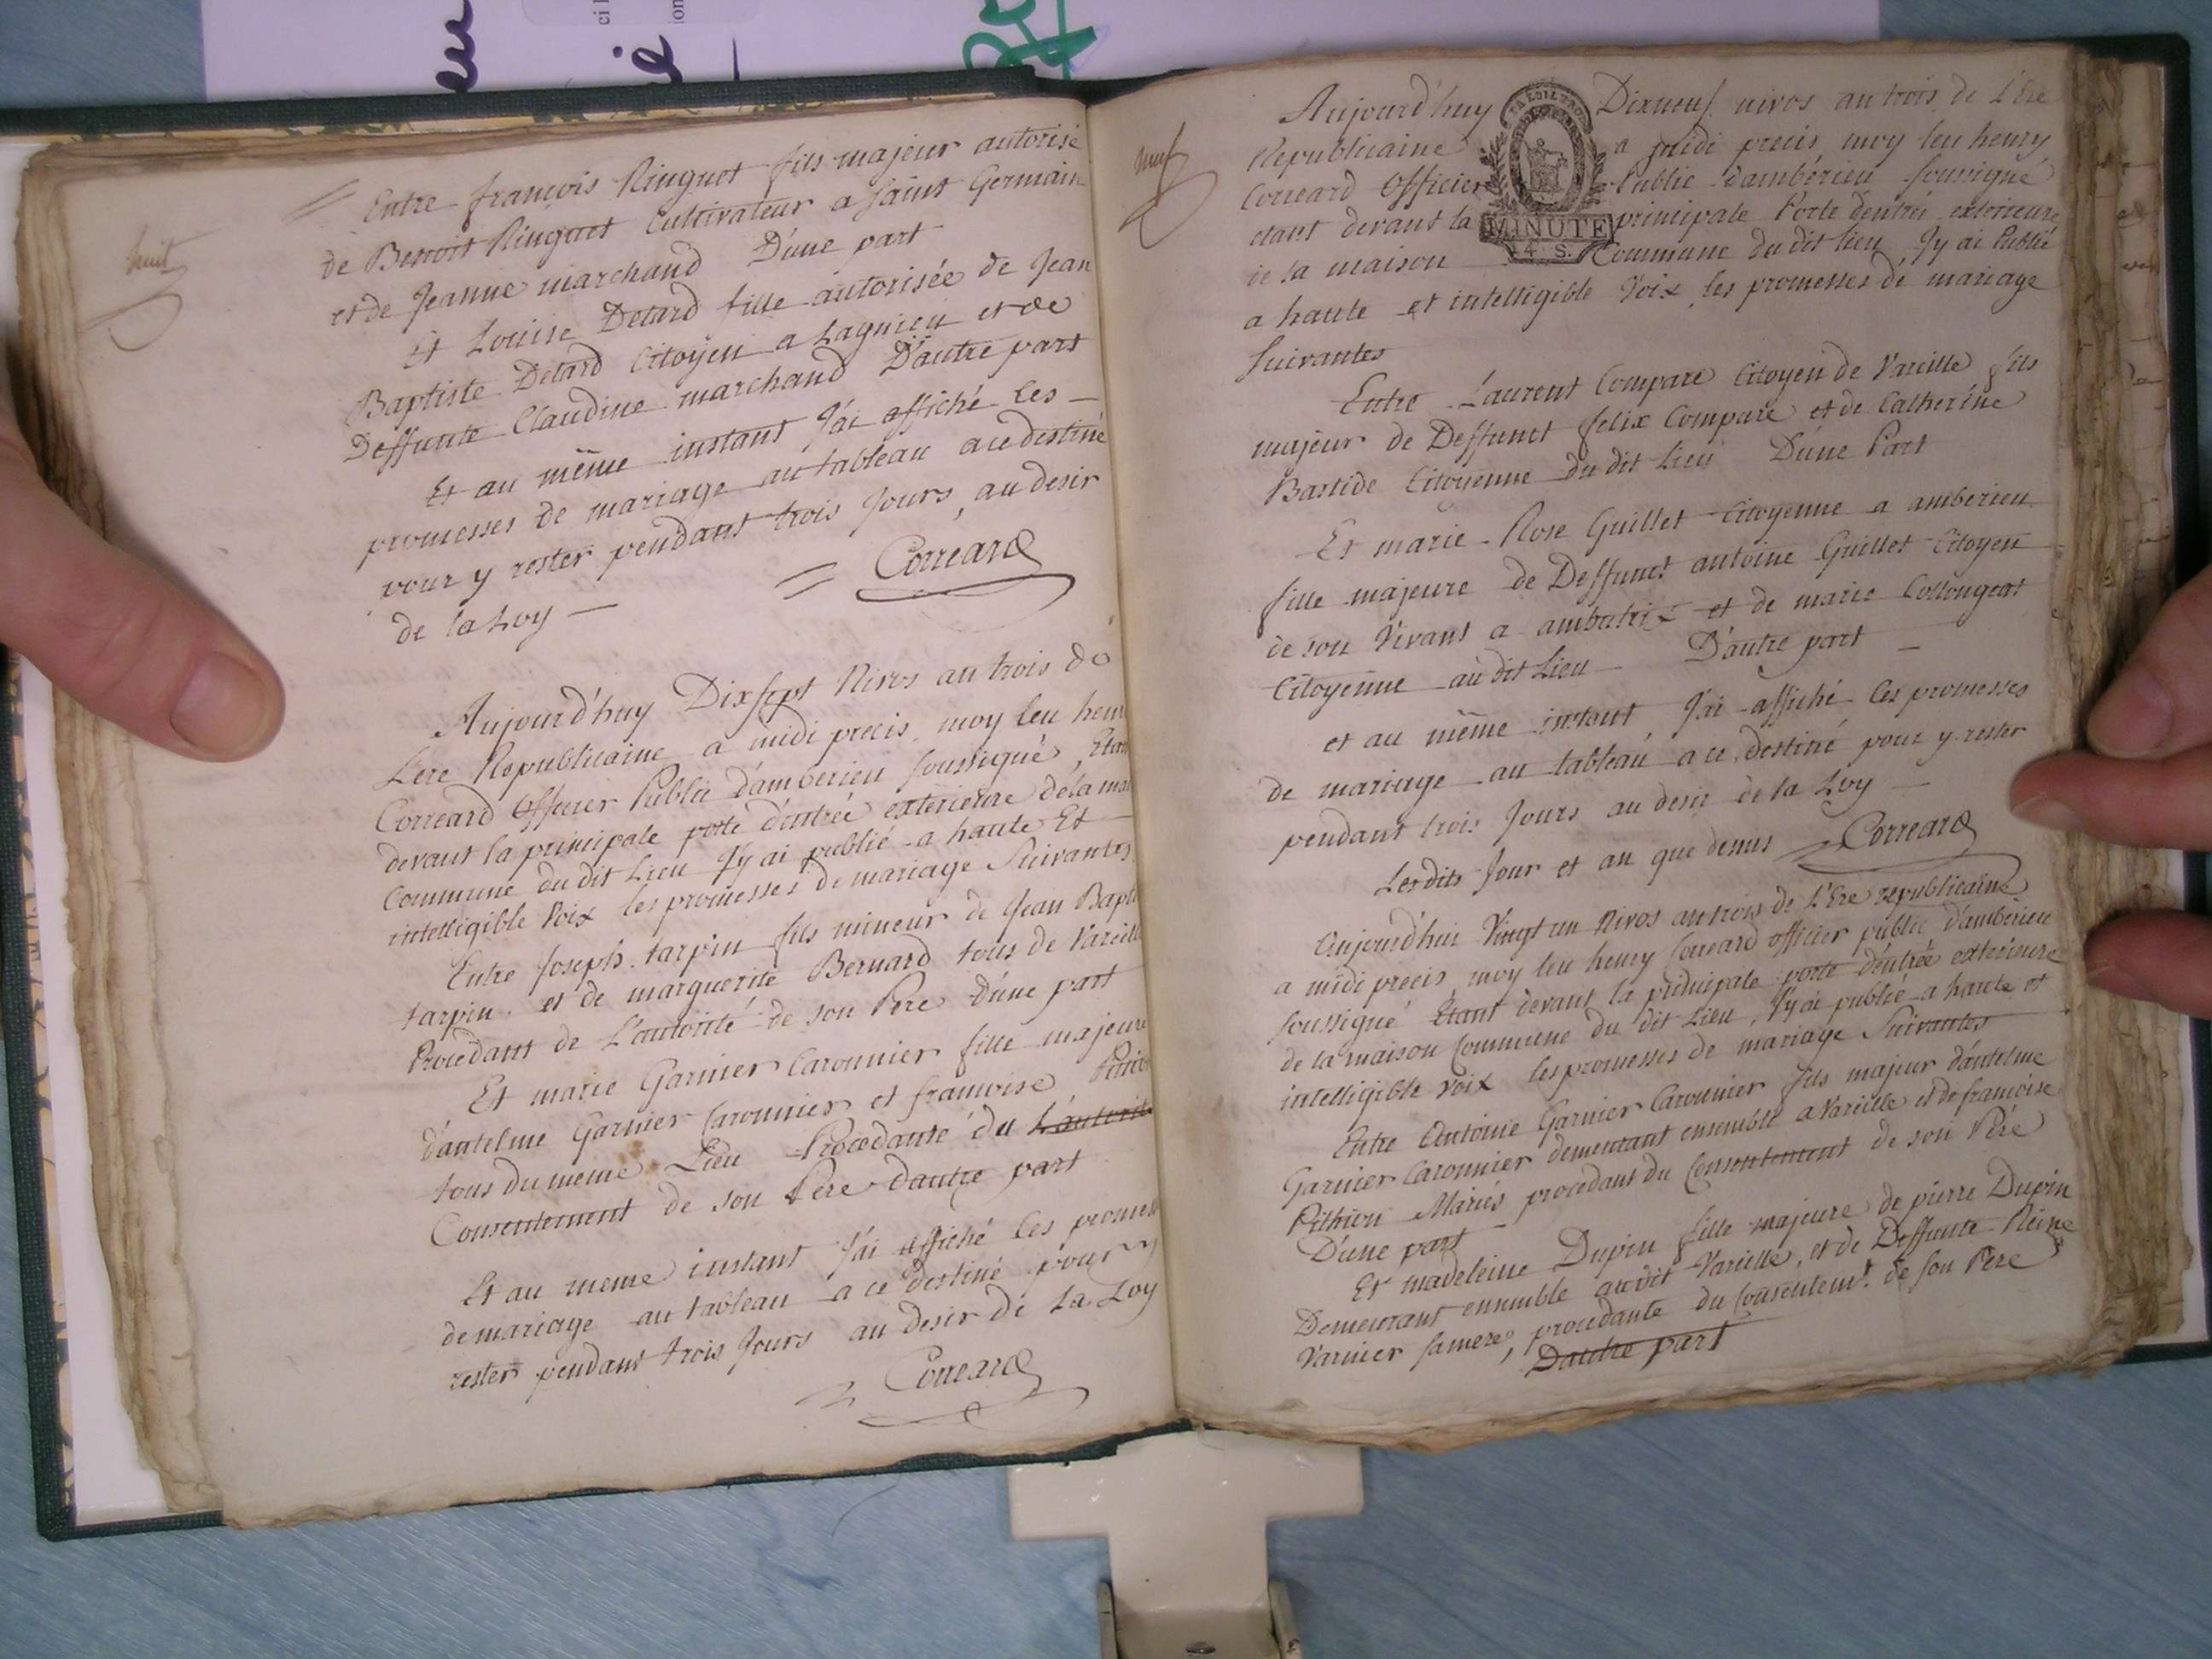 huit
Entre françois Ringuet fils majeur autorisé
de Benoit Ringuet Cultivateur a saint Germain
et de Jeanne marchand D'une part
Et Louise Détard fille autorisée de Jean
Baptiste Détard Citoyen a Lagnieu et de
Deffunte Claudine marchand D'autre part
Et au même instant J'ai affiché les
promesses de mariage au tableau a ce destiné
pour y rester pendant trois Jours, au desir
de la Loy — Correard
Aujourd'huy Dixsept Nivos an trois de
L'ere Republicaine a midi precis, moy leu hen
Correard Officier Public d'amberieu soussigné, Etan
devant la principale porte d'entrée exterieure de la mai
Commune du dit Lieu J'y ai publié a haute Et
intelligible Voix les promesses de mariage Suivantes
Entre Joseph tarpin fils mineur de Jean Bapti
tarpin et de marguerite Bernard tous de Vareille
Procedant de L'autorité de son Pere D'une part
Et marie Garnier Caronnier fille majeure
d'antelme Garnier Caronnier et francoise
tous du meme Lieu Procedante du L'autorit
Consentement de son Pere Dautre part
Et au meme instant J'ai affiché les promes
de mariage au tableau a ce destiné pour y
rester pendant trois Jours au desir de La Loy
Correard
neuf
Aujourd'huy Dixneuf nivos an trois de L'Ere
Republicaine a midi precis, moy leu henry
Correard Officier Public d'ambérieu soussigné
etant devant la principale Porte d'entrée exterieure
de la maison Commune du dit lieu J'y ai Publié
a haute et intelligible Voix les promesses de mariage
Suivantes
MINUTE
4 S.
Entre Laurent Compare Citoyen de Vareille fils
majeur de Deffunct felix Compare et de Catherine
Bastide Citoyenne du dit Lieu D'une Part
Et marie Rose Guillet Citoyenne a amberieu
fille majeure de Deffunct antoine Guillet Citoyen
de son Vivant a ambutrix et de marie Collongeat
Citoyenne au dit Lieu D'autre part —
et au même instant J'ai affiché les promesses
de mariage au tableau a ce destiné pour y rester
pendant trois Jours au desir de la Loy —
Lesdits Jour et an que dessus Correard
Aujourd'hui Vingt un Nivos an trois de L'Ere republicaine
a midi precis, moy leu henry Correard officier public d'ambérieu
soussigné Etant devant la principale porte d'entrée exterieure
de la maison Commune du dit Lieu, J'y ai publié a haute et
intelligible Voix les promesses de mariage Suivantes
Entre Antoine Garnier Caronnier fils majeur d'antelme
Garnier Caronnier demeurant ensemble a Vareille et de francoise
Pithion Mariés procedant du Consentement de son Pére
D'une part
Et madeleine Dupin fille majeure de pierre Dupin
Demeurant ensemble audit Vareille, et de Deffunte Reine
Varnier sa mere, procedante du Consentemt. de son Pere
Dautre part